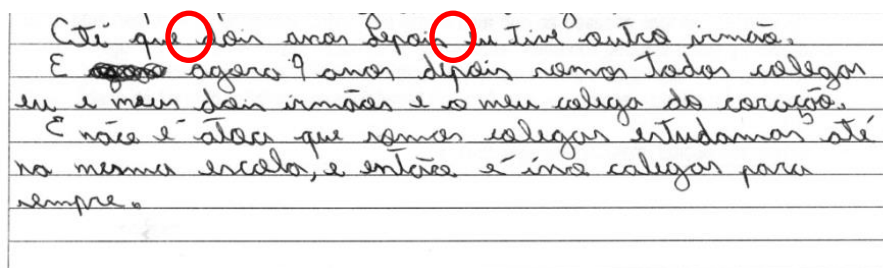 Até que dois anos depois eu tive outro irmão.
E agora 9 anos depois somos todos colegas
eu e meus dois irmãos e o meu colega do coração.
E não é átoa que somos colegas estudamos até
na mesma escola, e então é ino colegas para
sempre.